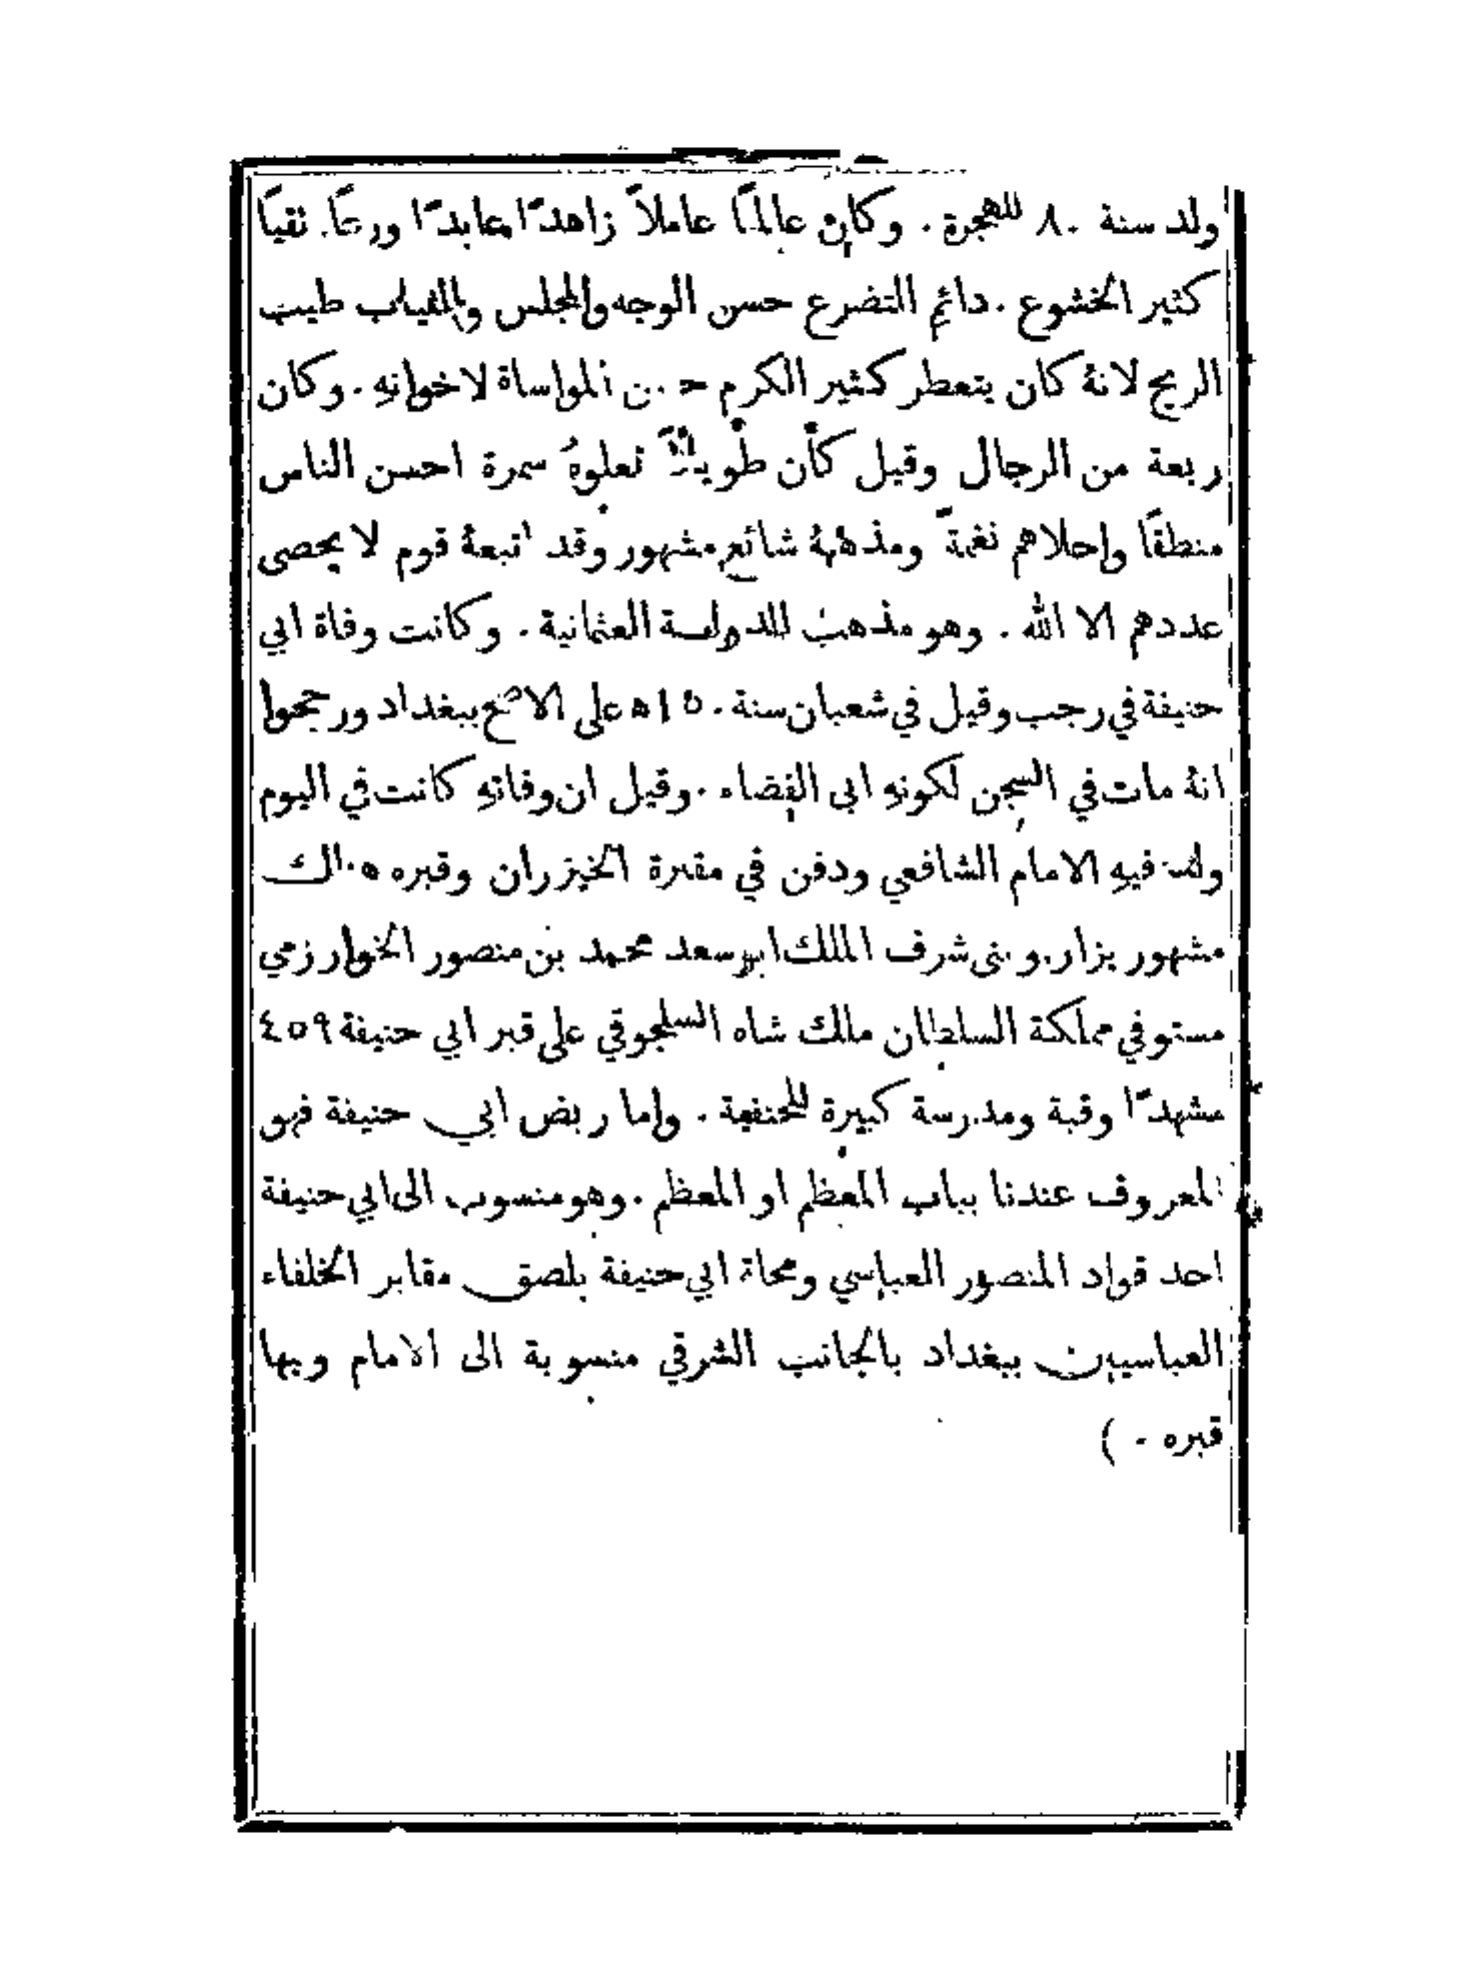 ولد سنة ٨٠ للهجرة. وكان عالمًا عاملاً زاهدًا عابدًا ورعًا. نقيًا
كثير الخشوع. دائم التضرع حسن الوجه والمجلس والثياب طيب
الريح لانهُ كان يتعطر كثير الكرم حسن المواساة لاخوانهِ. وكان
ربعة من الرجال وقيل كان طويلاً تعلوهُ سمرة احسن الناس
منطقًا واحلاهم نغمةً ومذهبهُ شائع مشهور وقد اتبعهُ قوم لا يحصى
عددهم الا الله. وهو مذهب للدولة العثمانية. وكانت وفاة ابي
حنيفة في رجب وقيل في شعبان سنة ١٥٠ه على الاصح ببغداد ورجحوا
انهُ مات في السجن لكونهِ ابى القضاء. وقيل ان وفاتهِ كانت في اليوم
ولد فيهِ الامام الشافعي ودفن في مقبرة الخيزران وقبره هنالك
مشهور يزار. وبنى شرف الملك ابو سعد محمد بن منصور الخوارزمي
مستوفي مملكة السلطان ملك شاه السلجوقي على قبر ابي حنيفة ٤٥٩
مشهدًا وقبة ومدرسة كبيرة للحنفية. واما ربض ابي حنيفة فهو
المعروف عندنا بباب المعظم او المعظم. وهو منسوب الى ابي حنيفة
احد قواد المنصور العباسي ومحلة ابي حنيفة بلصق مقابر الخلفاء
العباسيين ببغداد بالجانب الشرقي منسوبة الى الامام وبها
قبره. )